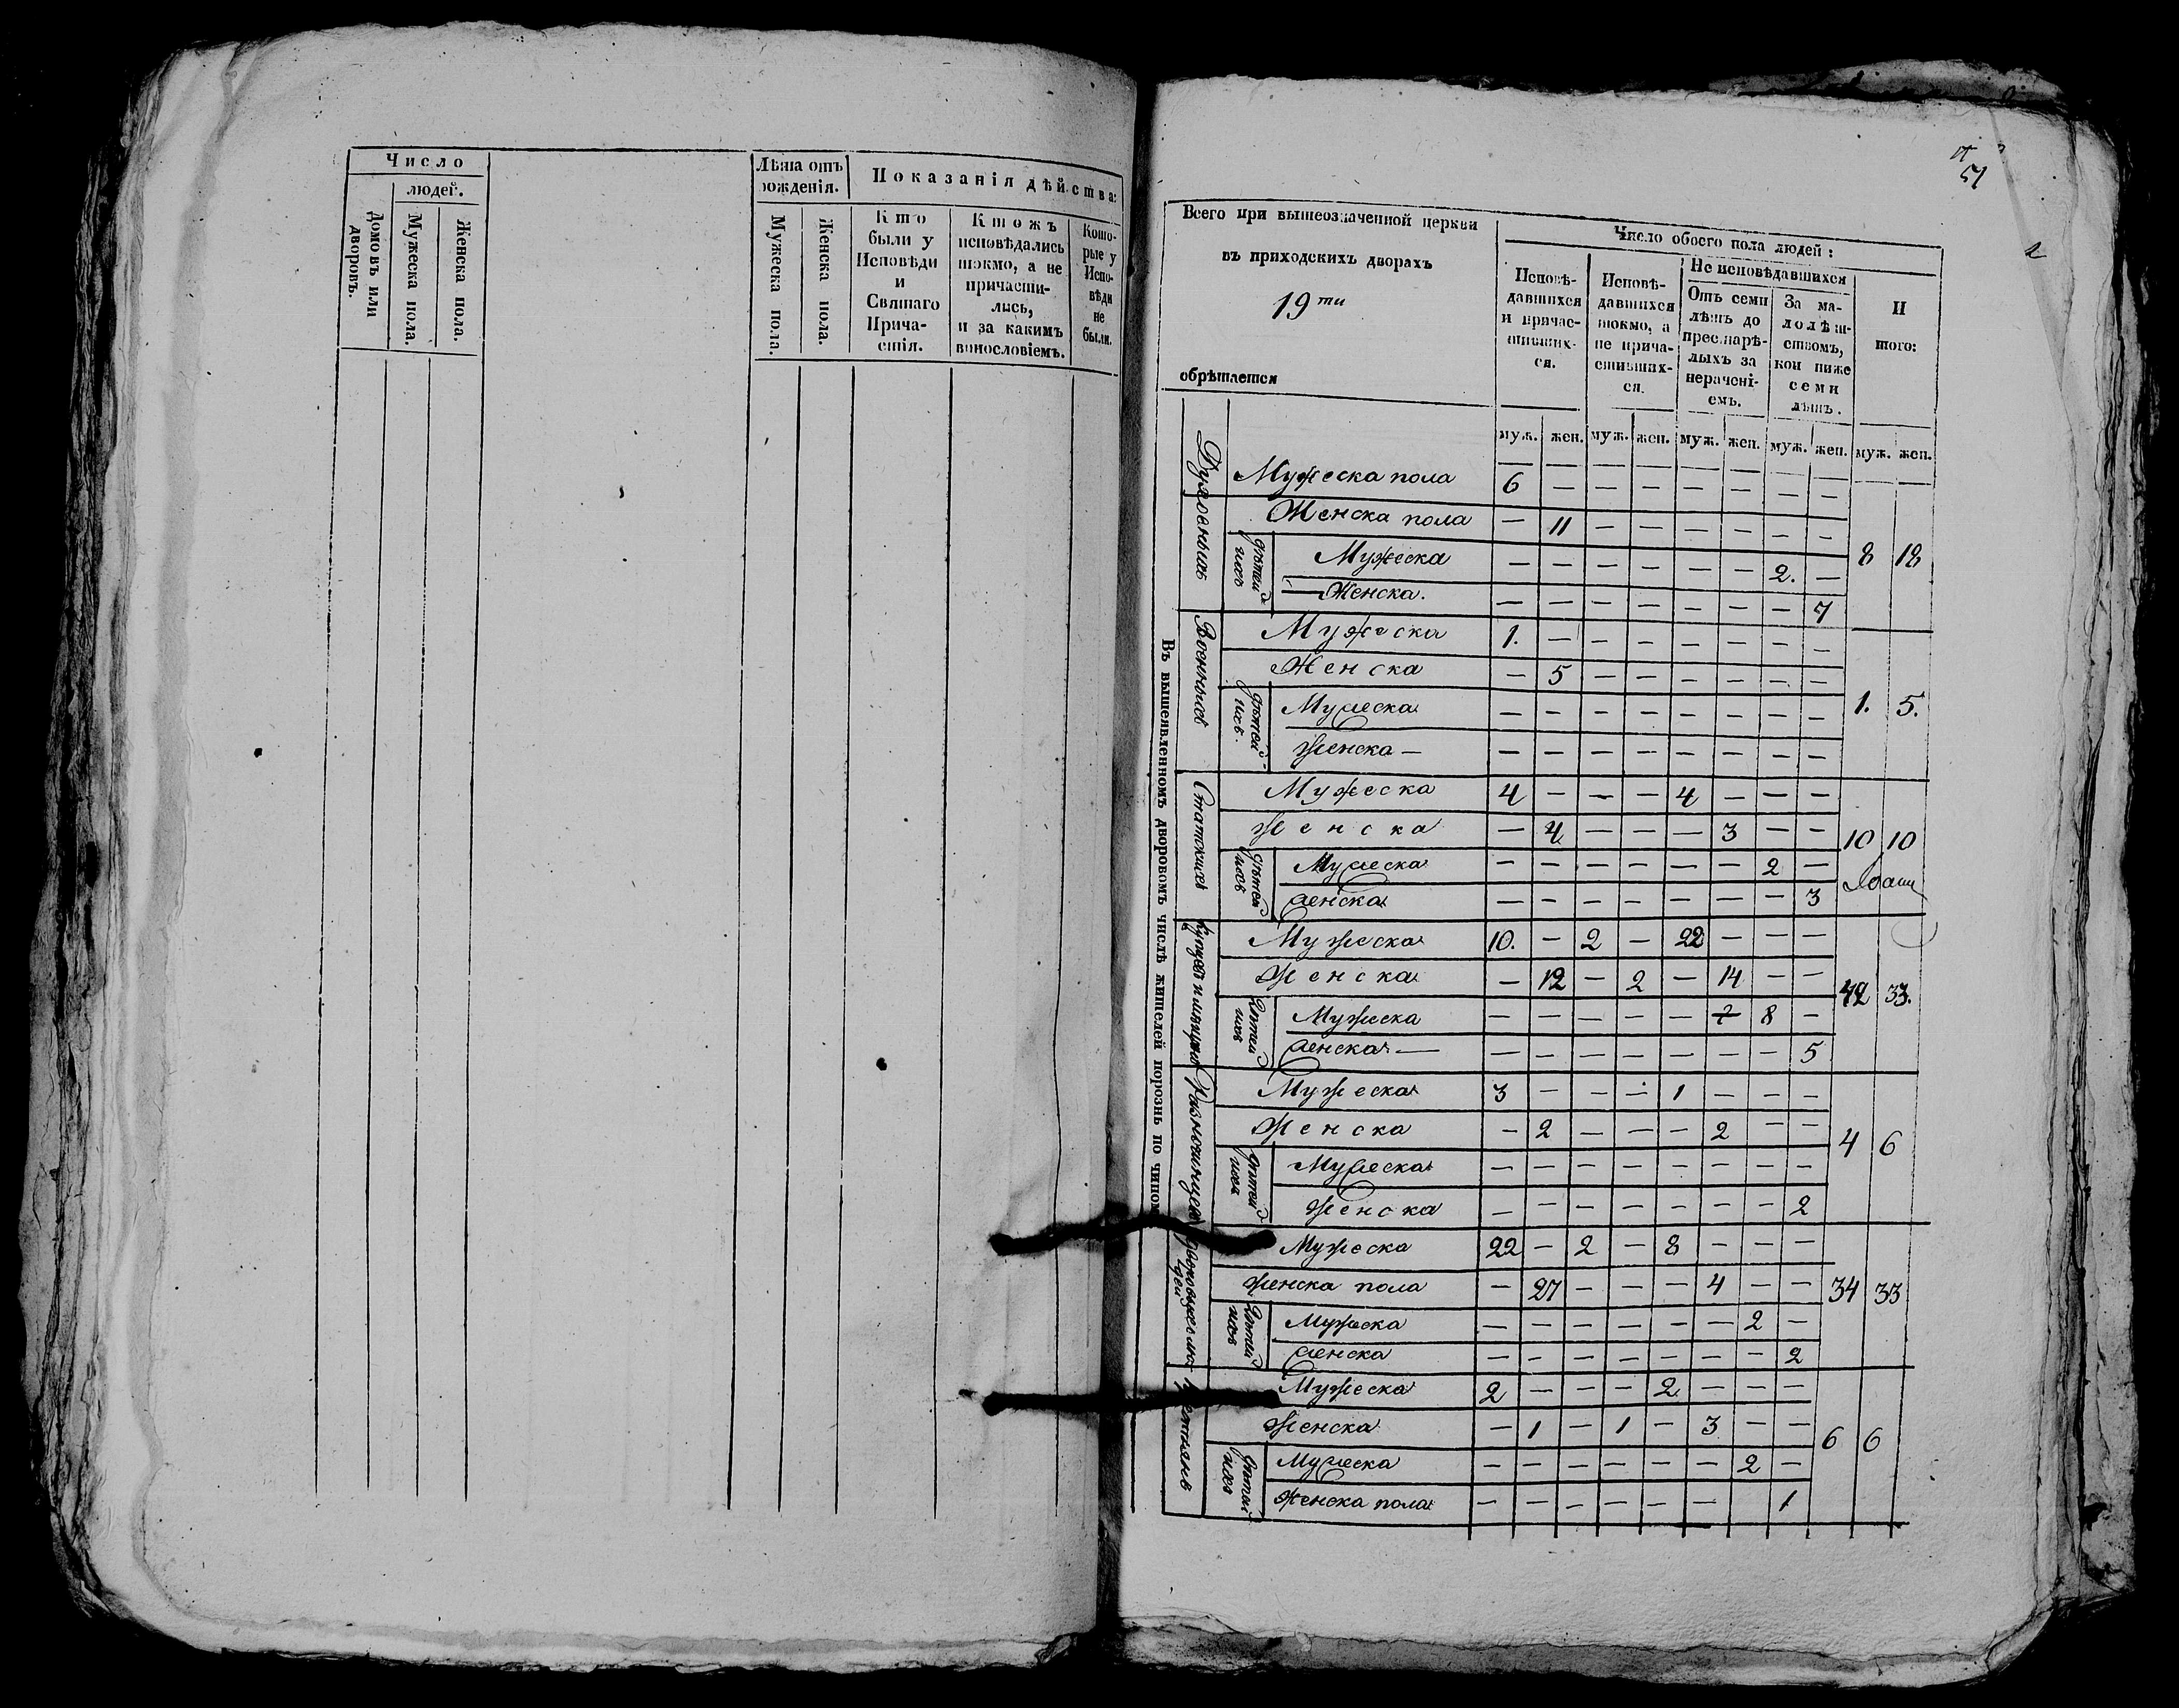 Число
людей.
Домовъ или дворовъ.
Мужеска пола.
Женска пола.
Лѣта отъ рожденія.
Мужеска пола.
Женска пола.
Показанія дѣйства:
Кто
были у
Исповѣди
и
Святаго
Прича-
стія.
Ктожъ
исповѣдались
токмо, а не
причасти-
лись,
и за какимъ
винословіемъ.
Кото-
рые у
Испо-
вѣди
не
были.
51
2
Всего при вышеозначенной церкви
въ приходскихъ дворахъ
19ти
обрѣтается
Число обоего пола людей:
Исповѣ-
давшихся
и причас-
тивших-
ся.
Исповѣ-
давшихся
токмо, а
не прича-
стивших-
ся.
Не исповѣдавшихся
Отъ семи
лѣтъ до
престарѣ-
лыхъ за
нерачені-
емъ.
За ма-
лолѣт-
ствомъ,
кои ниже
семи
лѣтъ.
И
того:
муж. жен. муж. жен. муж. жен. муж. жен. муж. жен.
Въ вышеявленномъ дворовомъ числѣ жителей порознь по чиномъ
Духовныхъ
Мужеска пола 6 — — — — — — —
Женска пола — 11 — — — — — —
дѣтей ихъ
Мужеска — — — — — — 2. —
Женска. — — — — — — — 7
8 18
Военныхъ
Мужеска 1. — — — — — — —
Женска — 5 — — — — — —
дѣтей ихъ.
Мужеска — — — — — — — —
Женска — — — — — — — —
1. 5.
Статскихъ
Мужеска 4 — — — 4 — — —
Женска — 4 — — — 3 — —
дѣтей ихъ
Мужеска — — — — — — 2 —
Женска — — — — — — — 3
10 10
Купцовъ и мѣщанъ
Мужеска 10. — 2 — 22 — — —
Женска — 12 — 2 — 14 — —
Дѣтей ихъ
Мужеска — — — — — 7 8 —
Женска — — — — — — — — 5
42 33.
Разночинцевъ
Мужеска 3 — — — 1 — — —
Женска — 2 — — — 2 — —
дѣтей ихъ
Мужеска — — — — — — — —
Женска — — — — — — — 2
4 6
дворовыхъ людей
Мужеска 22 — 2 — 8 — — —
Женска пола — 27 — — — 4 — —
Дѣтей ихъ
Мужеска — — — — — — 2 —
Женска — — — — — — — 2
34 33
Крестьянъ
Мужеска 2 — — — 2 — — —
Женска — 1 — 1 — 3 — —
дѣтей ихъ
Мужеска — — — — — — 2 —
Женска пола — — — — — — 1
6 6